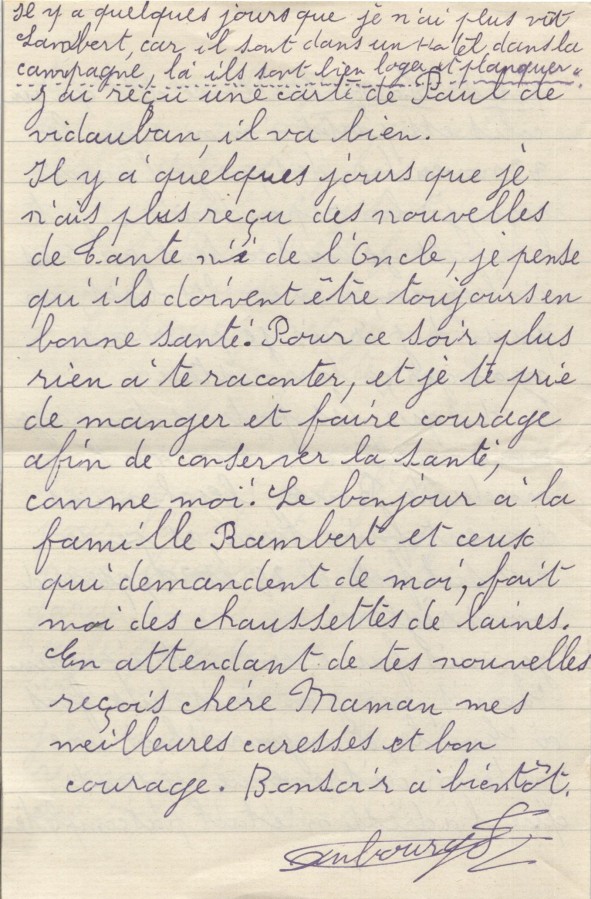 Il y a quelques jours que je n'ai plus vût
Lambert, car il sont dans un Hôtel dans la
campagne, là ils sont bien loger et planquer.
J'ai reçu une carte de Paul de
vidauban, il va bien.
Il y a quelques jours que jè
n'ais plus reçu des nouvelles
de tante n'i de l'Oncle, je pense
qu'ils doivent être toujours en
bonne santé. Pour ce soir plus
rien a te raconter, et jè te prie
de manger et faire courage
afin de conserver la santé,
comme moi. Le bonjour a la
famille Rambert et ceux
qui demandent de moi, fait
moi des chaussettes de laines.
En attendant de tes nouvelles
reçois chére Maman mes
meilleures caresses et bon
courage. Bonsoir a bientôt.
Aubourg